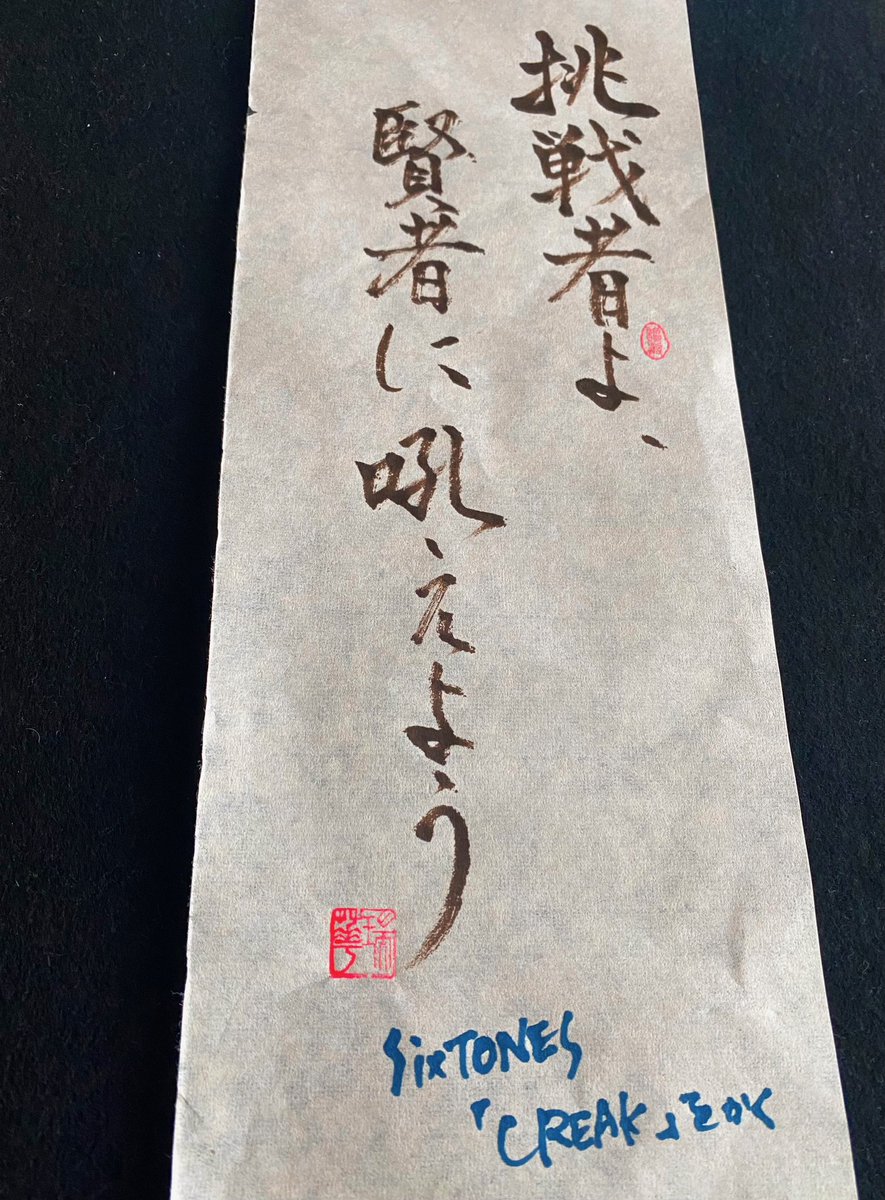 挑戦者よ、
賢者に吼えよう
SixTONES
「CREAK」をかく